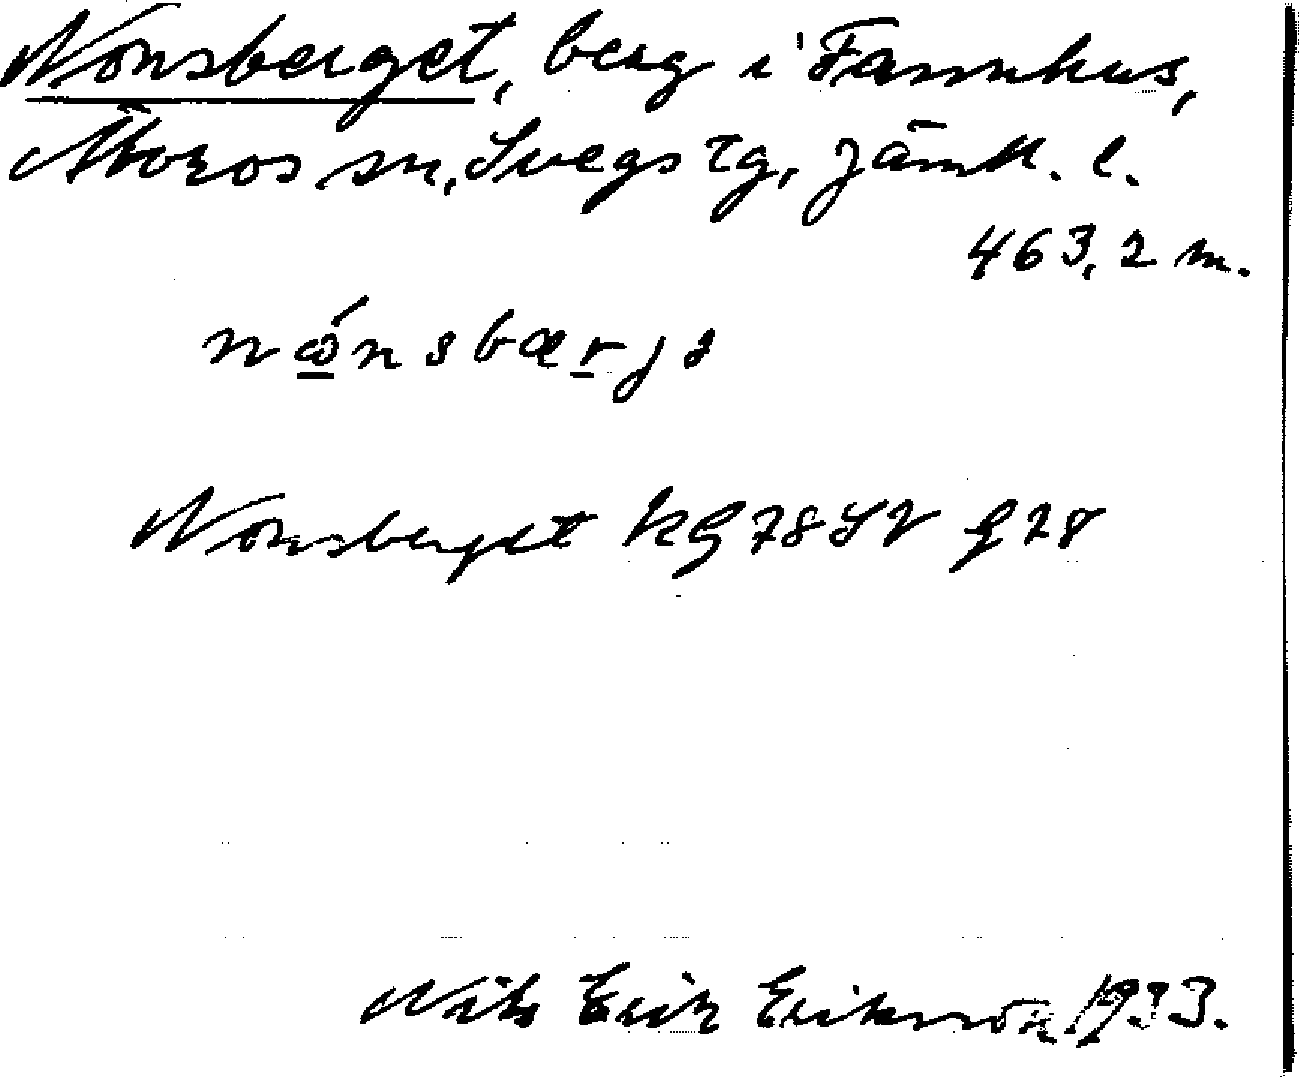 Nonsberget, berg i Fannhus,
Ytterhogdals sn, Svegs tg, Jämtl. l.
463,2 m.
nɷ́nsbærjə
Nonsberget kg 78 SV f 28
Nils Erik Eriksson 1933.